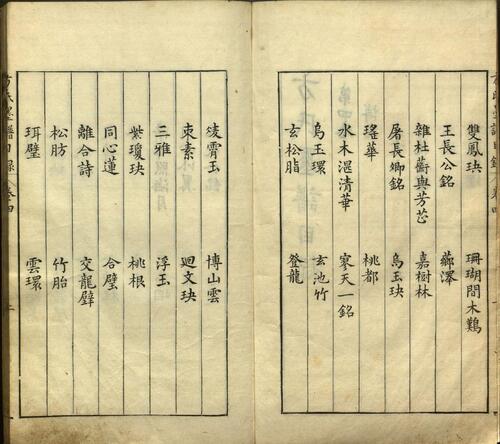 雙鳳玦 珊瑚間木難
王長公銘 薌澤
雜杜蘅與芳芷 嘉樹林
屠長卿銘 烏玉玦
瑤華 桃都
水木湛清華 寥天一銘
烏玉環 玄池竹
玄松脂 登龍
綾霄玉 博山雲
束素 迴文玦
三雅 浮玉
紫瓊玦 桃根
同心蓮 合璧
離合詩 交龍壁
松肪 竹胎
珥璧 雲環
方氏墨譜目錄 卷四